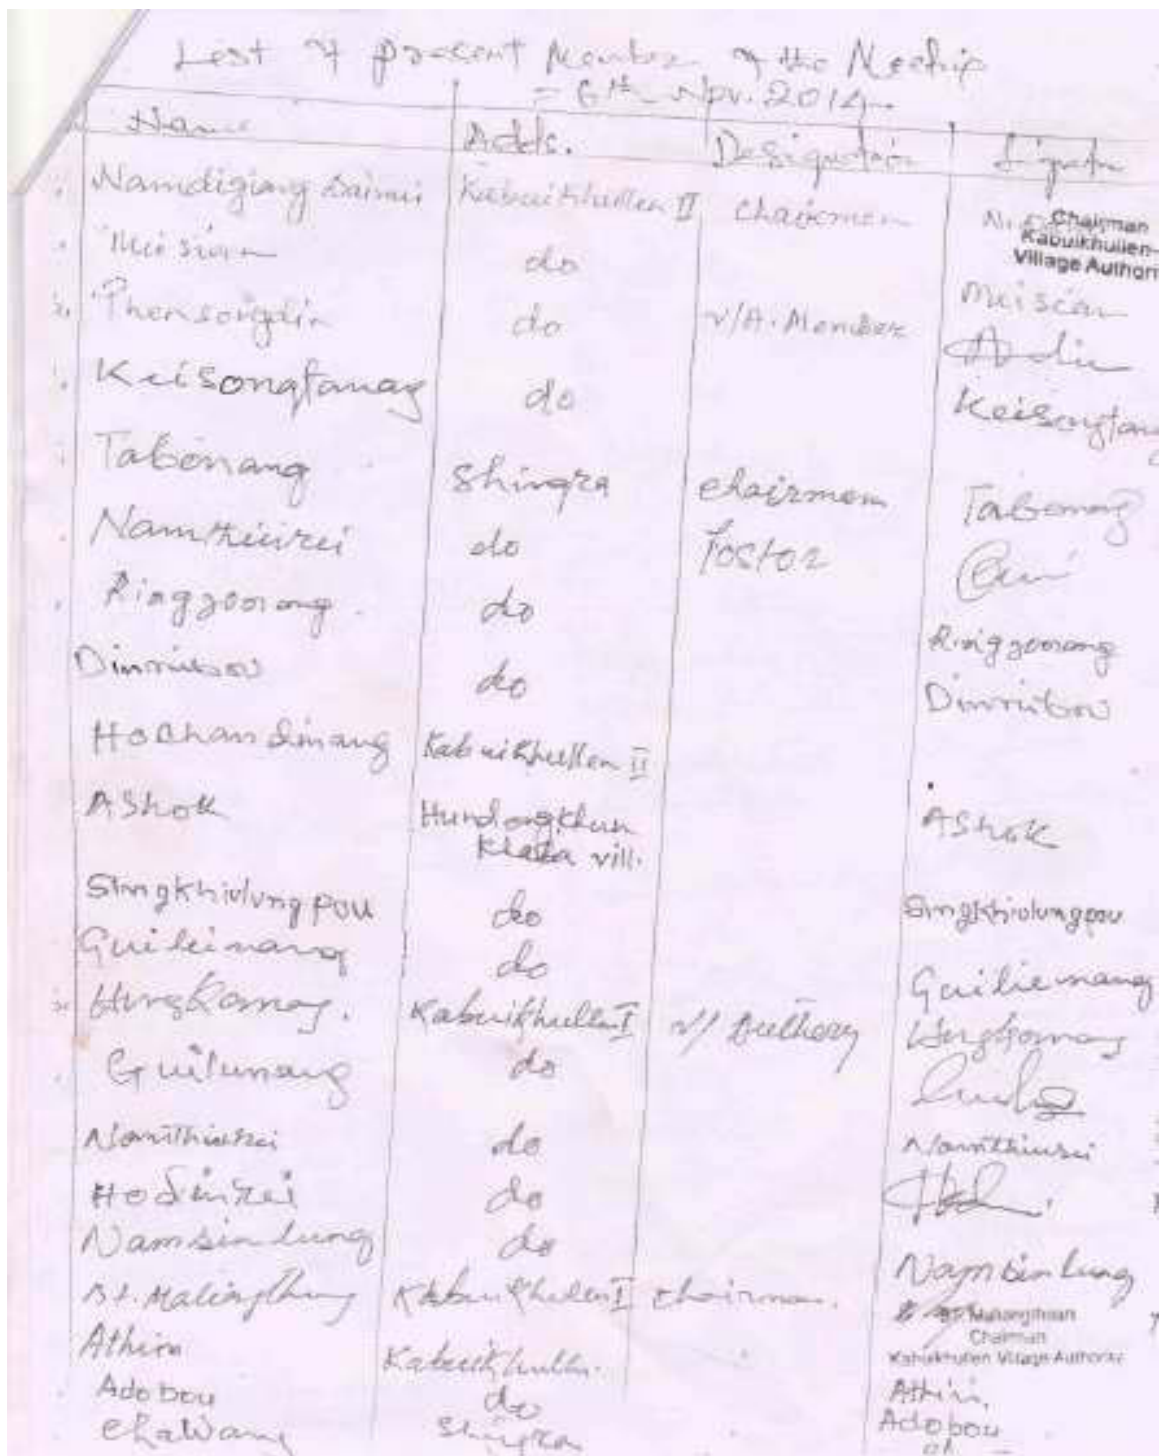 List of present Member of the Meeting
- 6th Nov. 2014.
Name Adds. Designation Signature
Namdigiang Kabuikhullen II Chairman
Chairman
Kabuikhullen-
Village Authori
Meisian do Meisian
Phensongdin do V/A. Member
Keisongtanag do Keisongtang
Tabonang Shingra chairmam Tabonang
Namthiurei do Pastor
Ringgoonang do Ringgoonang
Dinriubou do Dinriubou
Hochandinang Kabuikhullen II
AShok Hundongkhun AShok
vill.
Singkhiulungpou do Singkhiulungpou
Guileinang do Guilienang
Hungkamang. Kabuikhullen I V/
Guilunang do
Namthiurei do Namthiurei
Hodinrei do
Namsinlung do Namsinlung
Kabuikhullen I chairman.
Chairman
Kabuikhullen Village Authority
Athin Kabuikhullen. Athin,
Adobou do Adobou
Chawang Shingra